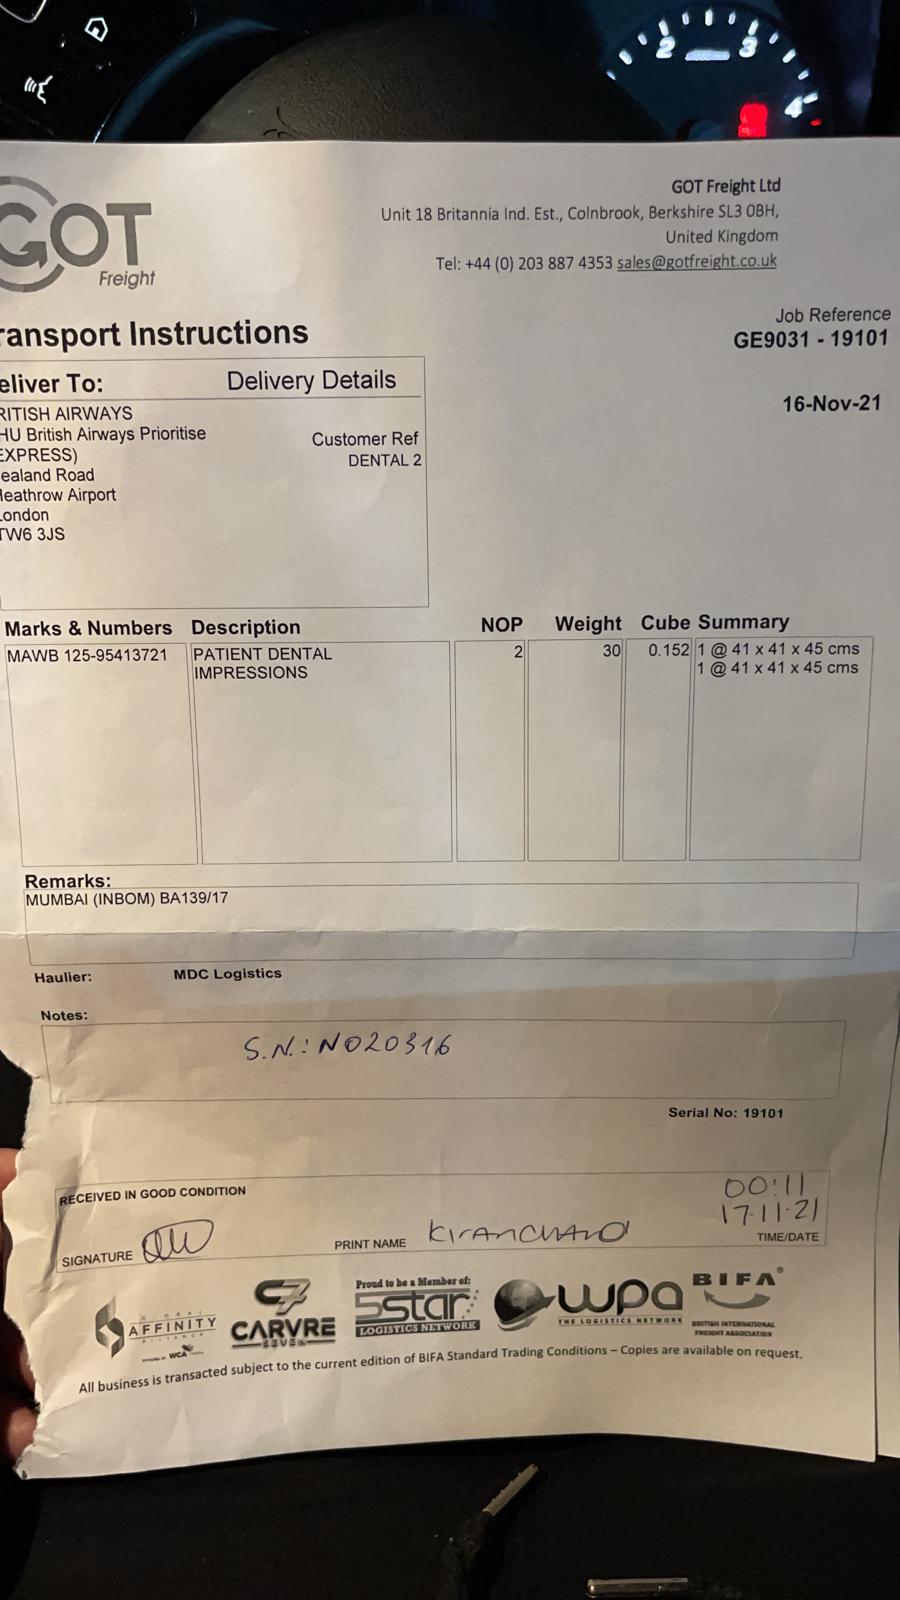 2 3 4
GOT
Freight
GOT Freight Ltd
Unit 18 Britannia Ind. Est., Colnbrook, Berkshire SL3 0BH,
United Kingdom
Tel: +44 (0) 203 887 4353 sales@gotfreight.co.uk
ransport Instructions
Job Reference
GE9031 - 19101
16-Nov-21
eliver To: Delivery Details
RITISH AIRWAYS
HU British Airways Prioritise
EXPRESS)
ealand Road
Heathrow Airport
London
TW6 3JS
Customer Ref
DENTAL 2
Marks & Numbers Description NOP Weight Cube Summary
MAWB 125-95413721 PATIENT DENTAL 2 30 0.152 1 @ 41 x 41 x 45 cms
IMPRESSIONS 1 @ 41 x 41 x 45 cms
Remarks:
MUMBAI (INBOM) BA139/17
Haulier: MDC Logistics
Notes:
S.N.: NO20316
Serial No: 19101
RECEIVED IN GOOD CONDITION
00:11
17.11.21
SIGNATURE PRINT NAME KIRANCHAND TIME/DATE
AFFINITY
WCA
C7
CARVRE
SEVEN
Proud to be a Member of:
5star
LOGISTICS NETWORK
wpa
THE LOGISTICS NETWORK
BIFA
BRITISH INTERNATIONAL
FREIGHT ASSOCIATION
All business is transacted subject to the current edition of BIFA Standard Trading Conditions – Copies are available on request.